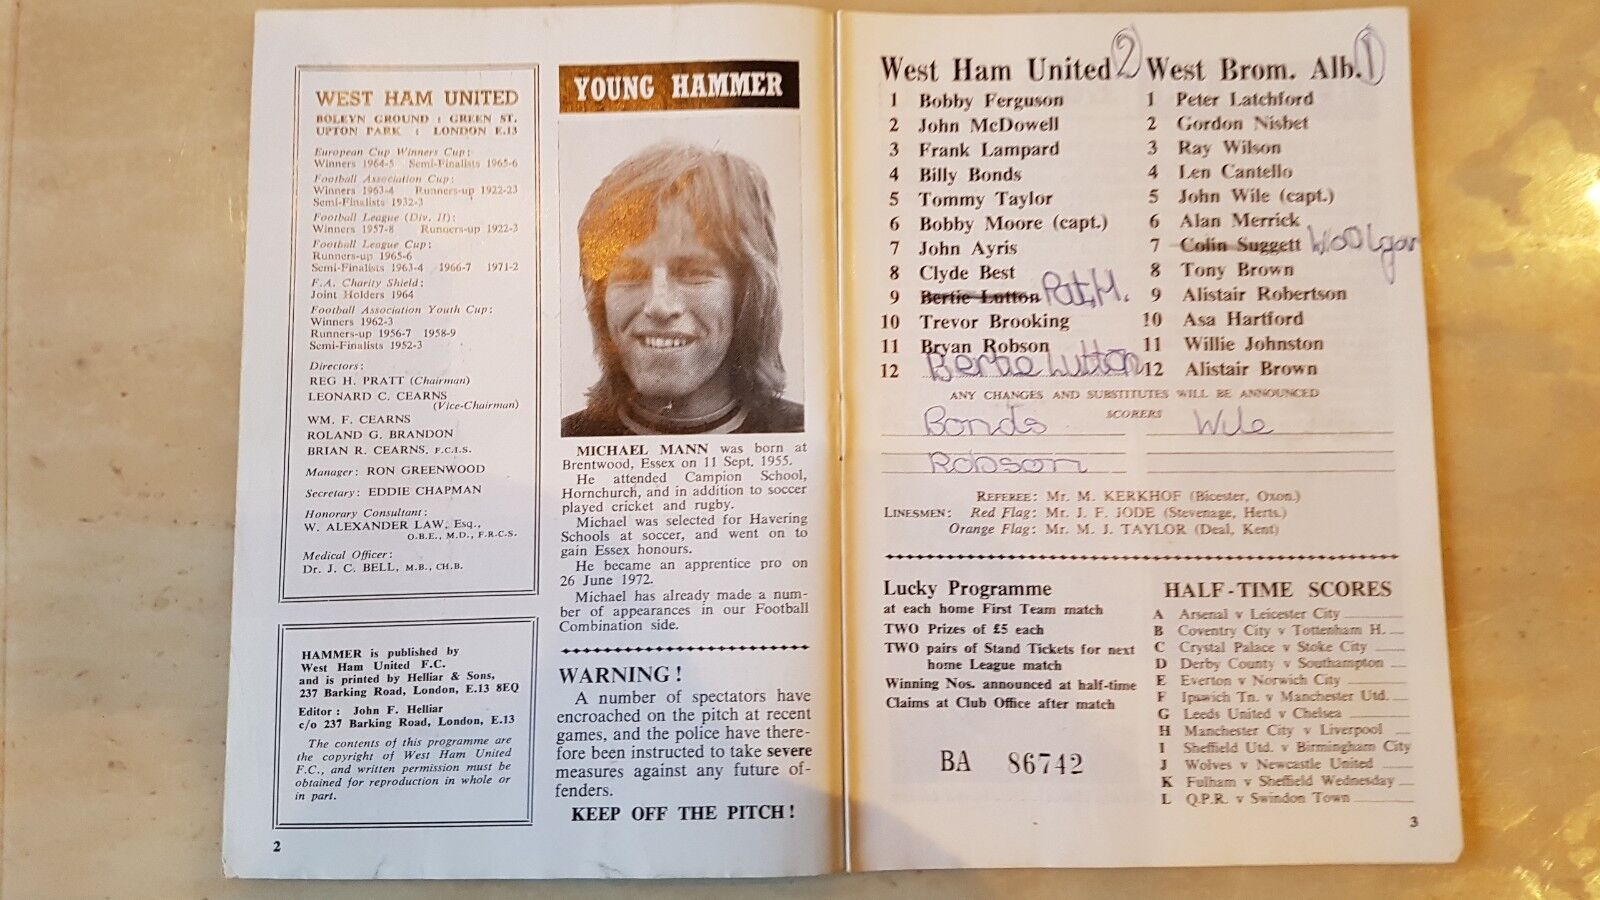 WEST HAM UNITED
BOLEYN GROUND : GREEN ST.
UPTON PARK : LONDON E.13
European Cup Winners Cup:
Winners 1964-5 Semi-Finalists 1965-6
Football Association Cup:
Winners 1963-4 Runners-up 1922-23
Semi-Finalists 1932-3
Football League (Div. II):
Winners 1957-8 Runners-up 1922-3
Football League Cup:
Runners-up 1965-6
Semi-Finalists 1963-4 1966-7 1971-2
F.A. Charity Shield:
Joint Holders 1964
Football Association Youth Cup:
Winners 1962-3
Runners-up 1956-7 1958-9
Semi-Finalists 1952-3
Directors:
REG H. PRATT (Chairman)
LEONARD C. CEARNS
(Vice-Chairman)
WM. F. CEARNS
ROLAND G. BRANDON
BRIAN R. CEARNS, F.C.I.S.
Manager: RON GREENWOOD
Secretary: EDDIE CHAPMAN
Honorary Consultant:
W. ALEXANDER LAW, Esq.,
O.B.E., M.D., F.R.C.S.
Medical Officer:
Dr. J. C. BELL, M.B., CH.B.
HAMMER is published by
West Ham United F.C.
and is printed by Helliar & Sons,
237 Barking Road, London, E.13 8EQ
Editor : John F. Helliar
c/o 237 Barking Road, London, E.13
The contents of this programme are
the copyright of West Ham United
F.C., and written permission must be
obtained for reproduction in whole or
in part.
2
YOUNG HAMMER
MICHAEL MANN was born at
Brentwood, Essex on 11 Sept. 1955.
He attended Campion School,
Hornchurch, and in addition to soccer
played cricket and rugby.
Michael was selected for Havering
Schools at soccer, and went on to
gain Essex honours.
He became an apprentice pro on
26 June 1972.
Michael has already made a num-
ber of appearances in our Football
Combination side.
WARNING!
A number of spectators have
encroached on the pitch at recent
games, and the police have there-
fore been instructed to take severe
measures against any future of-
fenders.
KEEP OFF THE PITCH!
West Ham United 2
1 Bobby Ferguson
2 John McDowell
3 Frank Lampard
4 Billy Bonds
5 Tommy Taylor
6 Bobby Moore (capt.)
7 John Ayris
8 Clyde Best
9 Bertie Lutton Pat. H.
10 Trevor Brooking
11 Bryan Robson
12 Bertie Lutton
West Brom. Alb. 1
1 Peter Latchford
2 Gordon Nisbet
3 Ray Wilson
4 Len Cantello
5 John Wile (capt.)
6 Alan Merrick
7 Colin Suggett Woolgar
8 Tony Brown
9 Alistair Robertson
10 Asa Hartford
11 Willie Johnston
12 Alistair Brown
ANY CHANGES AND SUBSTITUTES WILL BE ANNOUNCED
SCORERS
Bonds Wile
Robson
REFEREE: Mr. M. KERKHOF (Bicester, Oxon.)
LINESMEN: Red Flag: Mr. J. F. JODE (Stevenage, Herts.)
Orange Flag: Mr. M. J. TAYLOR (Deal, Kent)
Lucky Programme
at each home First Team match
TWO Prizes of £5 each
TWO pairs of Stand Tickets for next
home League match
Winning Nos. announced at half-time
Claims at Club Office after match
BA 86742
HALF-TIME SCORES
A Arsenal v Leicester City
B Coventry City v Tottenham H.
C Crystal Palace v Stoke City
D Derby County v Southampton
E Everton v Norwich City
F Ipswich Tn. v Manchester Utd.
G Leeds United v Chelsea
H Manchester City v Liverpool
I Sheffield Utd. v Birmingham City
J Wolves v Newcastle United
K Fulham v Sheffield Wednesday
L Q.P.R. v Swindon Town
3